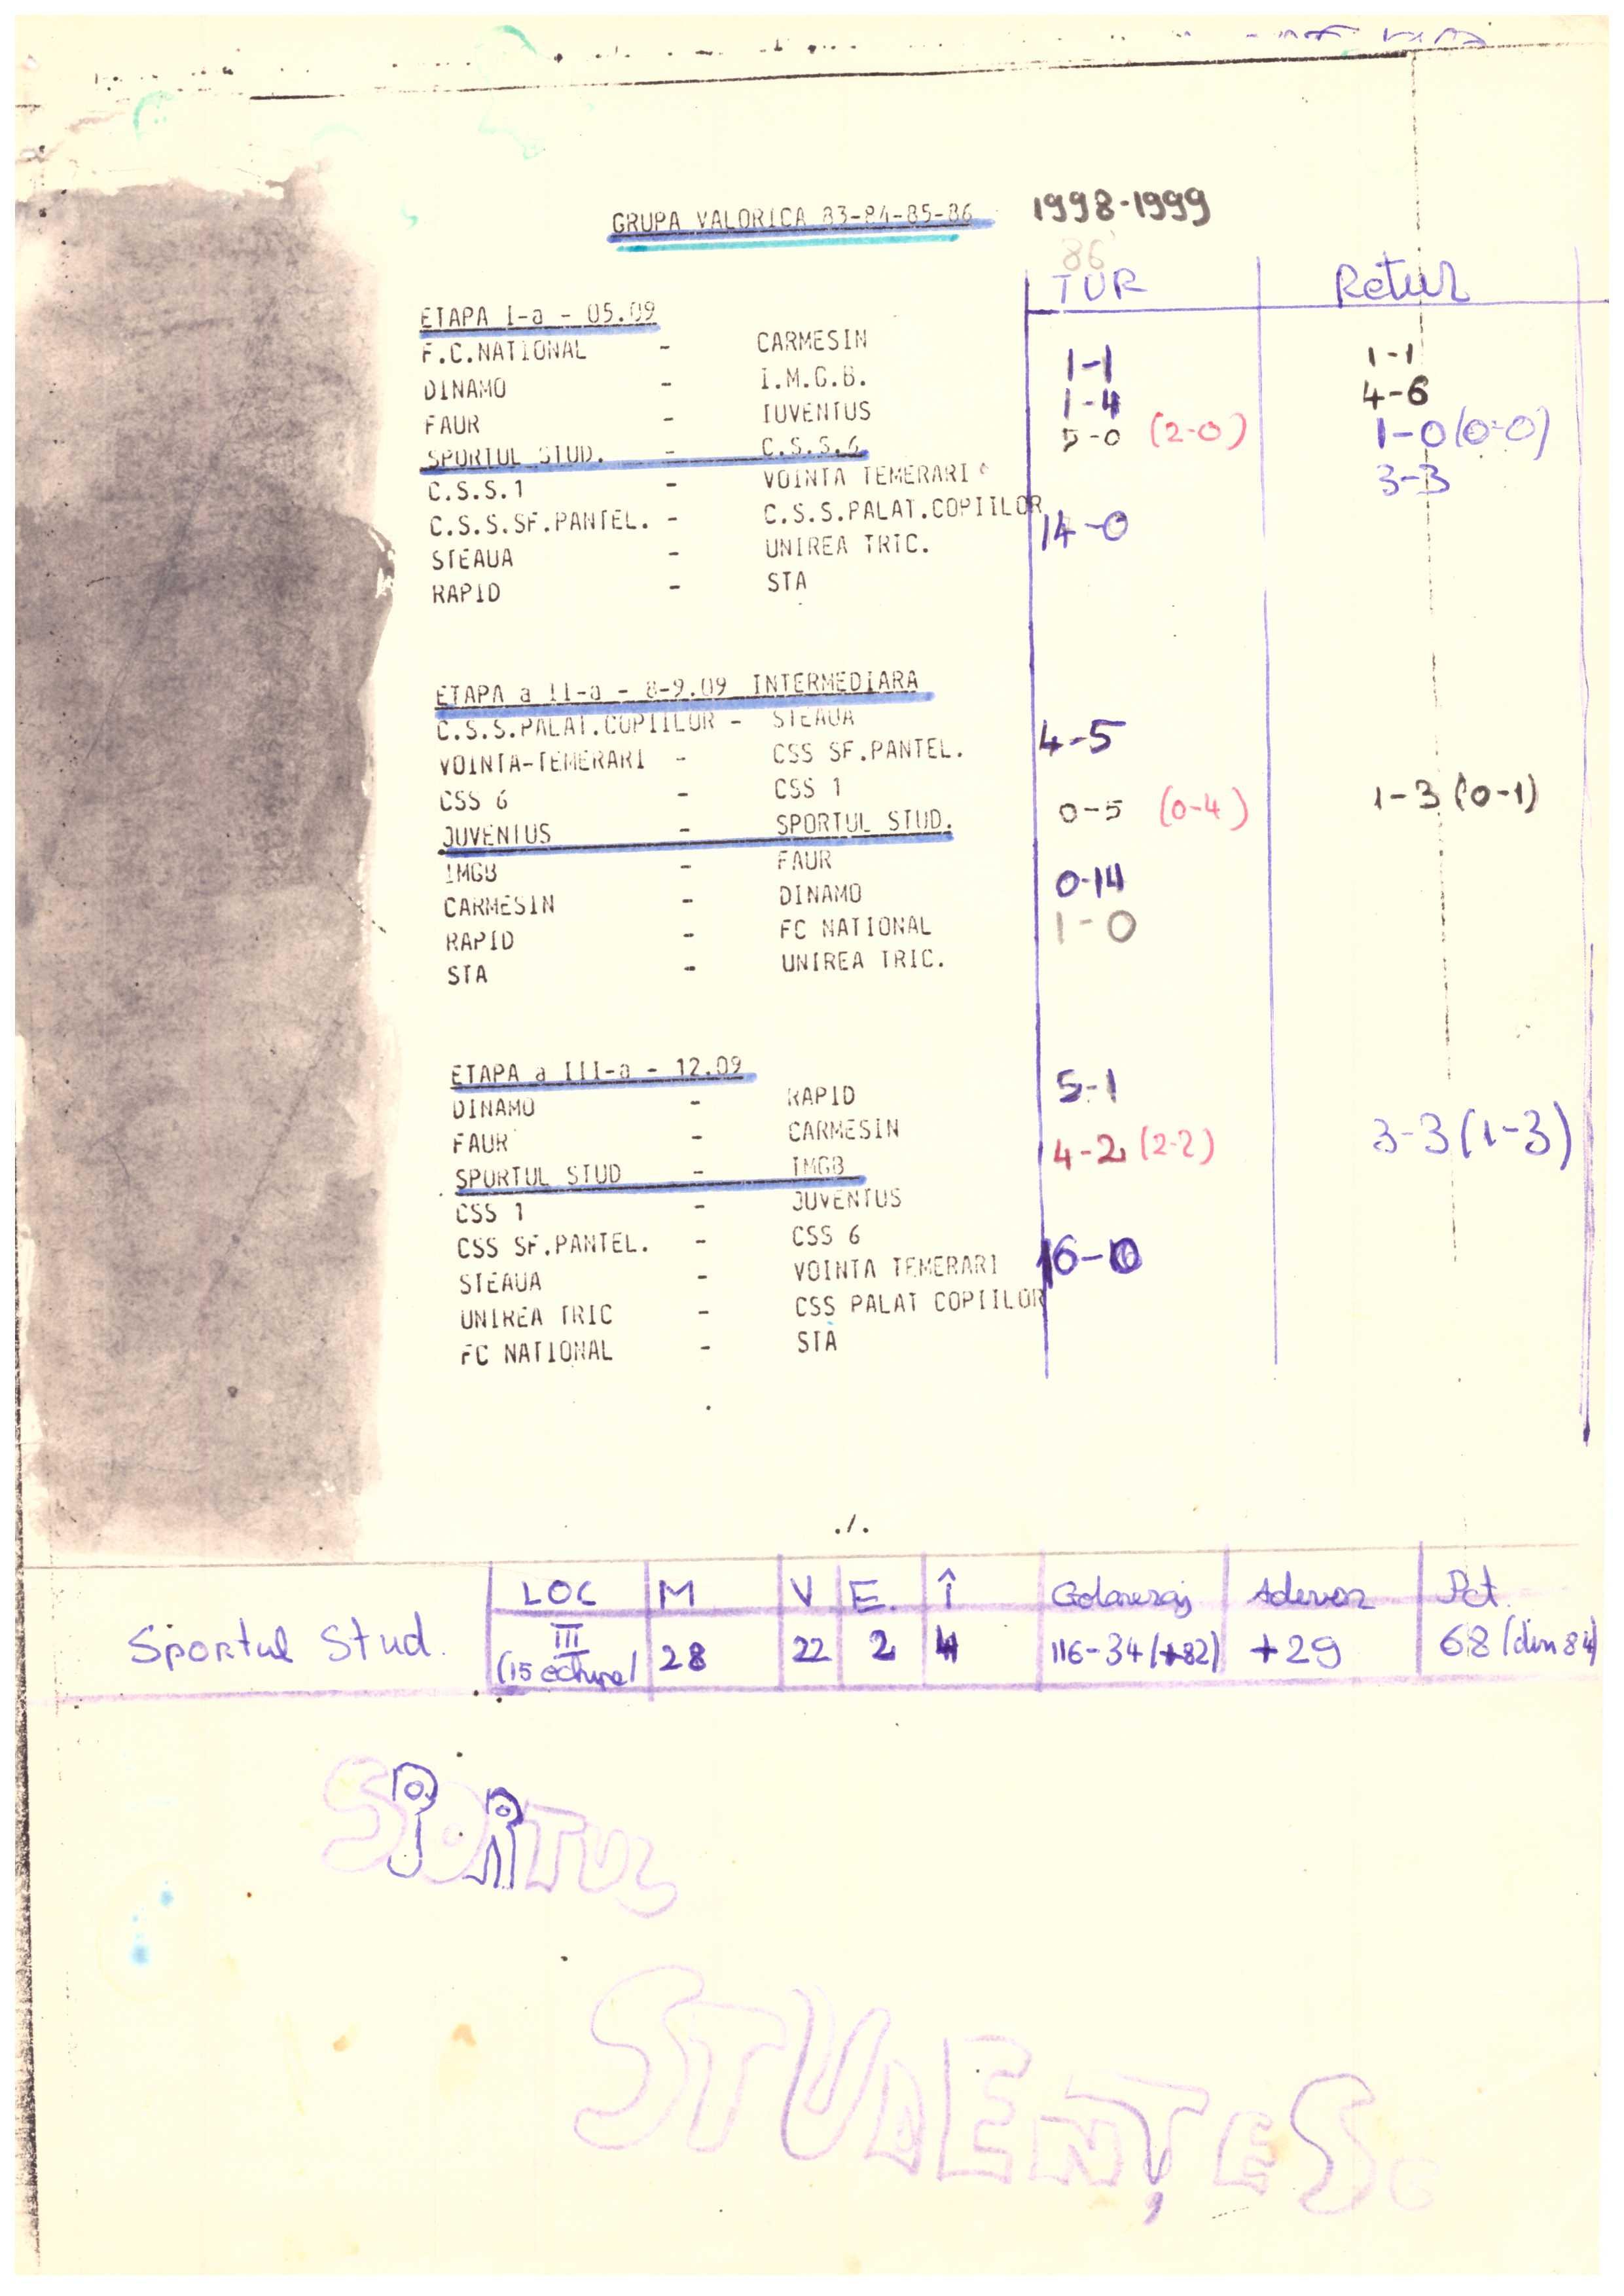 GRUPA VALORICA 83-84-85-86 1998-1999
86
TUR Retur
ETAPA I-a - 05.09
F.C.NATIONAL - CARMESIN 1-1 1-1
DINAMO - I.M.G.B. 1-4 4-6
FAUR - IUVENTUS 5-0 (2-0) 1-0(0-0)
SPORTUL STUD. - C.S.S.6 3-3
C.S.S.1 - VOINTA TEMERARI
C.S.S.SF.PANTEL. - C.S.S.PALAT.COPIILOR 14-0
STEAUA - UNIREA TRIC.
RAPID - STA
ETAPA a II-a - 8-9.09 INTERMEDIARA
C.S.S.PALAT.COPIILOR - STEAUA 4-5
VOINTA-TEMERARI - CSS SF.PANTEL.
CSS 6 - CSS 1
JUVENTUS - SPORTUL STUD. 0-5 (0-4) 1-3(0-1)
IMGB - FAUR
CARMESIN - DINAMO 0-14
RAPID - FC NATIONAL 1-0
STA - UNIREA TRIC.
ETAPA a III-a - 12.09
DINAMO - RAPID 5-1
FAUR - CARMESIN
SPORTUL STUD - IMGB 4-2 (2-2) 3-3(1-3)
CSS 1 - JUVENTUS
CSS SF.PANTEL. - CSS 6
STEAUA - VOINTA TEMERARI 16-0
UNIREA TRIC - CSS PALAT COPIILOR
FC NATIONAL - STA
./.
LOC M V E. Î Golaveraj Adevăr Pct.
Sportul Stud. III 28 22 2 4 116-34(+82) +29 68 (din 84)
(15 echipe)
SPORTUL
STUDENȚESC